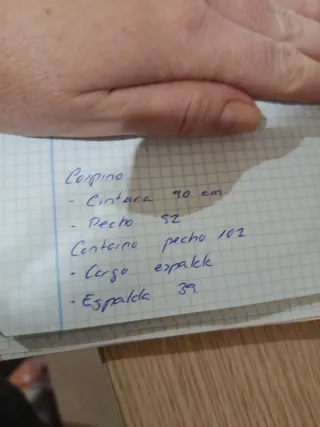 Corpino
- Cintura 90 cm
- Pecho 92
Contorno pecho 102
- Largo espalda
- Espalda 39